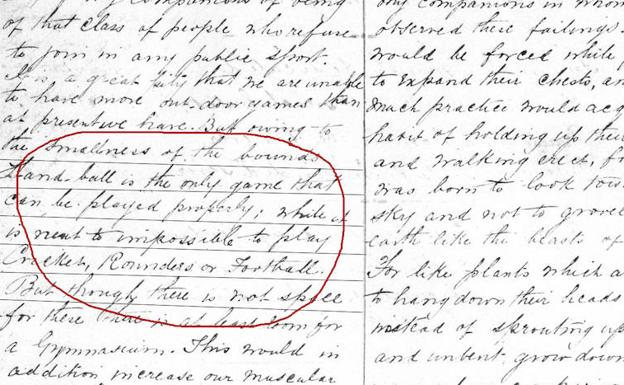 of that class of people who refuse
to join in any public sport.
It is a great pity that we are unable
to have more out-door games than
at present we have. But owing to
the smallness of the bounds
Hand ball is the only game that
can be played properly; while it
is next to impossible to play
Cricket, Rounders or Football.
But though there is not space
for these there is at least room for
a Gymnasium. This would in
addition increase our muscular
only companions in whom
observed these failings.
would be forced while
to expand their chests, an
much practice would acq
habit of holding up their
and walking erect, f
was born to look tow
sky and not to grovel
earth like the beasts of
For like plants which a
to hang down their heads
instead of sprouting up
and unbent, grow down